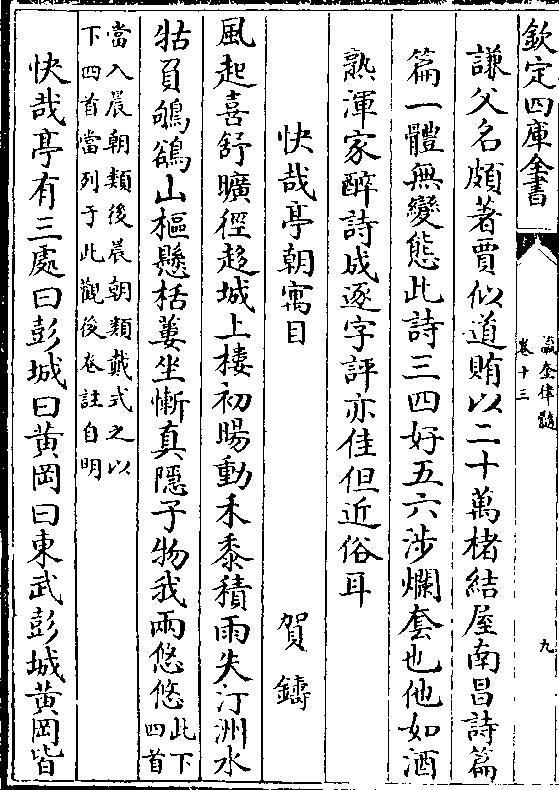 欽定四庫全書
瀛奎律髓
卷十三
九
謙父名頗著賈似道賄以二十萬楮結屋南昌詩篇
篇一體無變態此詩三四好五六涉爛套也他如酒
熟渾家醉詩成逐字評亦佳但近俗耳
快哉亭朝寓目 賀鑄
風起喜舒曠徑趍城上樓初暘動禾黍積雨失汀洲水
牯負鵁鶄山樞懸栝蔞坐慚真隱子物我兩悠悠此下四首
當入晨朝類後晨朝類戴式之以
下四首當列于此觀後卷註自明
快哉亭有三處曰彭城曰黄岡曰東武彭城黄岡皆